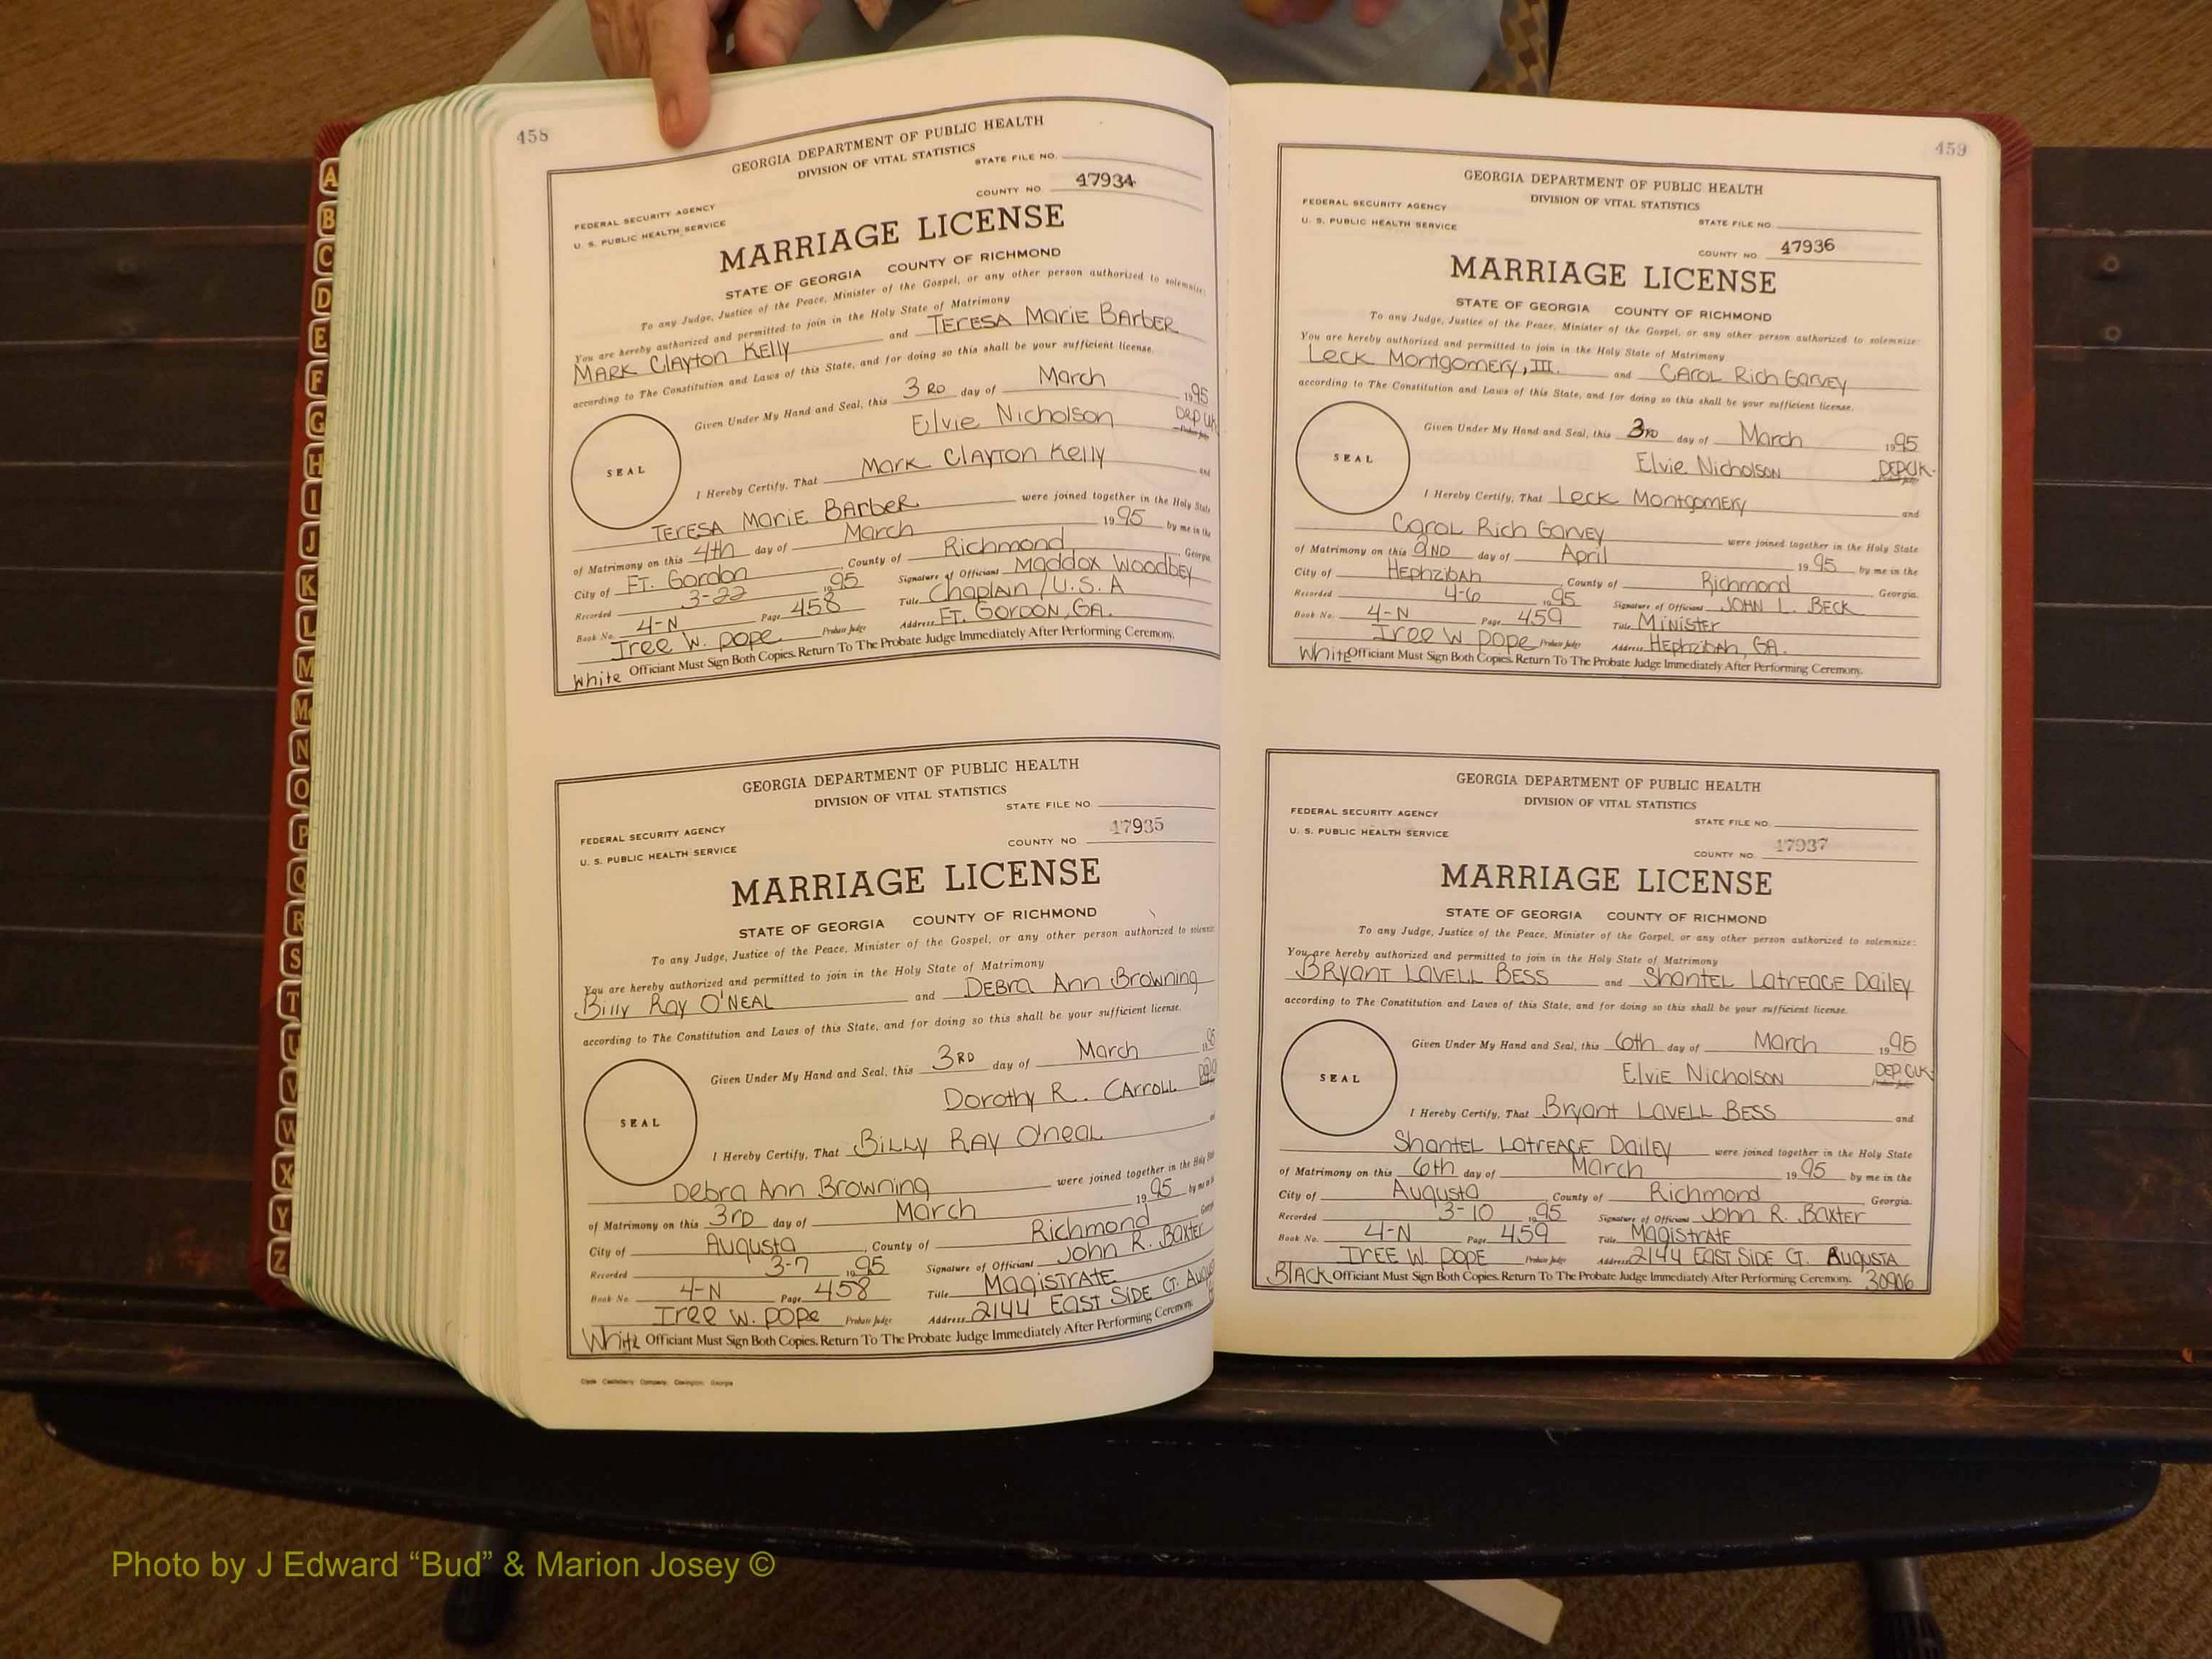 458
GEORGIA DEPARTMENT OF PUBLIC HEALTH
DIVISION OF VITAL STATISTICS
STATE FILE NO.
COUNTY NO. 47934
FEDERAL SECURITY AGENCY
U. S. PUBLIC HEALTH SERVICE
MARRIAGE LICENSE
STATE OF GEORGIA COUNTY OF RICHMOND
To any Judge, Justice of the Peace, Minister of the Gospel, or any other person authorized to solemnize:
You are hereby authorized and permitted to join in the Holy State of Matrimony
MARK Clayton Kelly and TERESA MariE BArbER
according to The Constitution and Laws of this State, and for doing so this shall be your sufficient license.
Given Under My Hand and Seal, this 3RD day of March 1995
Elvie Nicholson DEP Clk
SEAL
I Hereby Certify, That Mark Clayton Kelly and
TERESA MariE BArbeR were joined together in the Holy State
of Matrimony on this 4th day of March 1995 by me in the
City of Ft. Gordon, County of Richmond Georgia.
Recorded 3-22 1995 Signature of Officiant Maddox Woodbey
Book No. 4-N Page 458 Title Chaplain / U.S.A
Iree W. Pope Probate Judge Address Ft. GORDON, GA.
White Officiant Must Sign Both Copies. Return To The Probate Judge Immediately After Performing Ceremony.
GEORGIA DEPARTMENT OF PUBLIC HEALTH
DIVISION OF VITAL STATISTICS
STATE FILE NO.
FEDERAL SECURITY AGENCY
COUNTY NO. 47935
U. S. PUBLIC HEALTH SERVICE
MARRIAGE LICENSE
STATE OF GEORGIA COUNTY OF RICHMOND
To any Judge, Justice of the Peace, Minister of the Gospel, or any other person authorized to solemnize
You are hereby authorized and permitted to join in the Holy State of Matrimony
Billy Ray O'NEAL and DEBra Ann Browning
according to The Constitution and Laws of this State, and for doing so this shall be your sufficient license.
Given Under My Hand and Seal, this 3RD day of March 1995
Dorothy R. CArroll
SEAL
I Hereby Certify, That BiLLY RAY O'neaL
Debra Ann Browning were joined together in the Holy
of Matrimony on this 3rD day of March 1995 by me in
City of Augusta, County of Richmond
Recorded 3-7 1995 Signature of Officiant John R. Baxter
Book No. 4-N Page 458 Title MagiStrAtE
Iree W. Pope Probate Judge Address 2144 EAST SIDE CT.
White Officiant Must Sign Both Copies. Return To The Probate Judge Immediately After Performing Ceremony.
459
GEORGIA DEPARTMENT OF PUBLIC HEALTH
DIVISION OF VITAL STATISTICS
FEDERAL SECURITY AGENCY
U. S. PUBLIC HEALTH SERVICE
STATE FILE NO.
COUNTY NO. 47936
MARRIAGE LICENSE
STATE OF GEORGIA COUNTY OF RICHMOND
To any Judge, Justice of the Peace, Minister of the Gospel, or any other person authorized to solemnize:
You are hereby authorized and permitted to join in the Holy State of Matrimony
Leck Montgomery, III. and CAroL Rich GarvEy
according to The Constitution and Laws of this State, and for doing so this shall be your sufficient license.
Given Under My Hand and Seal, this 3rD day of March 1995
Elvie Nicholson DEP Clk.
SEAL
I Hereby Certify, That Leck Montgomery and
CaroL Rich Garvey were joined together in the Holy State
of Matrimony on this 2ND day of April 1995 by me in the
City of Hephzibah, County of Richmond Georgia.
Recorded 4-6 1995 Signature of Officiant JOHN L. BECK
Book No. 4-N Page 459 Title MiniSter
Iree W. Pope Probate Judge Address HEphzibAh, GA.
White Officiant Must Sign Both Copies. Return To The Probate Judge Immediately After Performing Ceremony.
GEORGIA DEPARTMENT OF PUBLIC HEALTH
DIVISION OF VITAL STATISTICS
FEDERAL SECURITY AGENCY
STATE FILE NO.
U. S. PUBLIC HEALTH SERVICE
COUNTY NO. 47937
MARRIAGE LICENSE
STATE OF GEORGIA COUNTY OF RICHMOND
To any Judge, Justice of the Peace, Minister of the Gospel, or any other person authorized to solemnize:
You are hereby authorized and permitted to join in the Holy State of Matrimony
BRyant LAVELL BESS and ShantEL LatrEACE DaiLEy
according to The Constitution and Laws of this State, and for doing so this shall be your sufficient license.
Given Under My Hand and Seal, this 6th day of March 1995
Elvie Nicholson DEP. Clk
SEAL
I Hereby Certify, That Bryant LAVELL BESS and
ShantEL LatrEACE DaiLEy were joined together in the Holy State
of Matrimony on this 6th day of March 1995 by me in the
City of Augusta, County of Richmond Georgia.
Recorded 3-10 1995 Signature of Officiant John R. Baxter
Book No. 4-N Page 459 Title MagiStrAtE
IrEE W. POPE Probate Judge Address 2144 EAST SiDE CT. AUGUSTA
BlACK Officiant Must Sign Both Copies. Return To The Probate Judge Immediately After Performing Ceremony. 30906
A
B
C
D
E
F
G
H
I
J
K
L
M
Mc
N
O
P
Q
R
S
T
U
V
W
X
Y
Z
Photo by J Edward “Bud” & Marion Josey ©